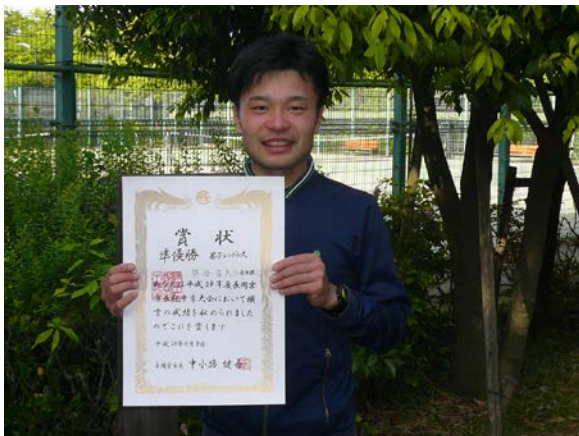 賞状
準優勝 男子シングルス
あなたは平成28年度長岡京
市長杯
大会において頭
書の成績を収められました
のでこれを賞します
平成28年
長岡京市長 中小路 健吾